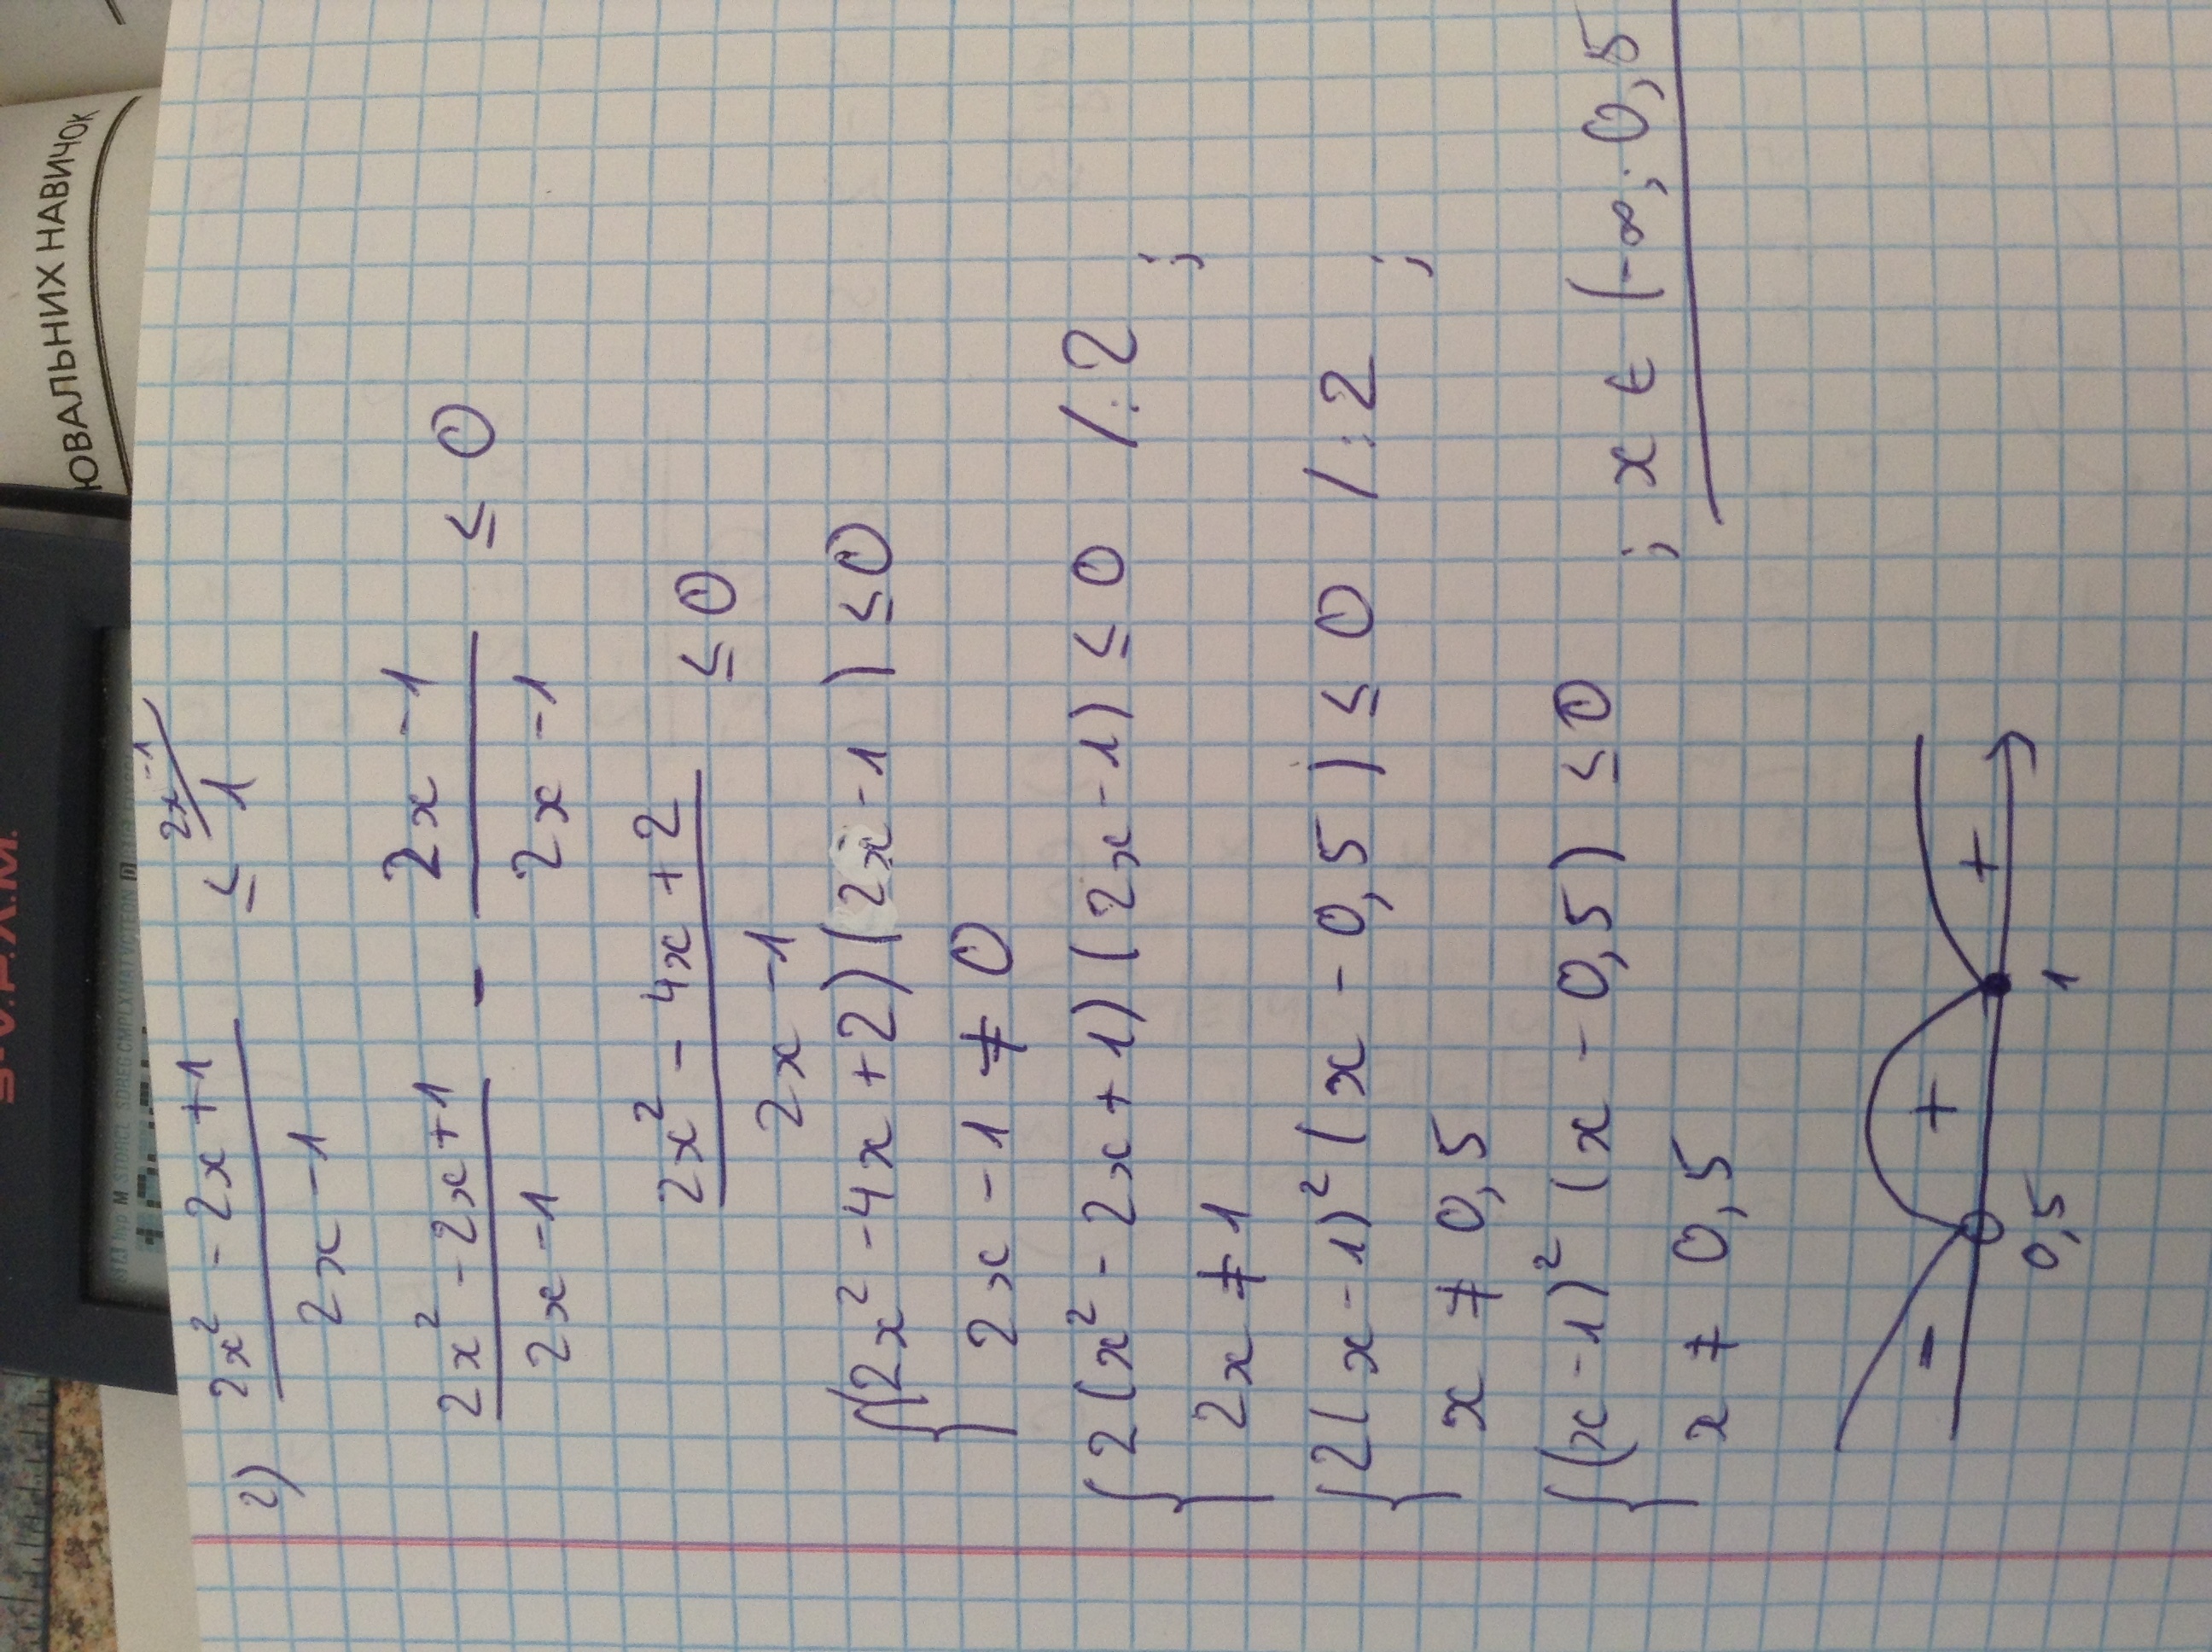 ЮВАЛЬНИХ НАВИЧОК
S-V.P.A.M.
2) (2x² - 2x + 1)/(2x - 1) ≤ 1 / 2x - 1
(2x² - 2x + 1)/(2x - 1) - (2x - 1)/(2x - 1) ≤ 0
(2x² - 4x + 2)/(2x - 1) ≤ 0
{(2x² - 4x + 2)(2x - 1) ≤ 0
2x - 1 ≠ 0
{2(x² - 2x + 1)(2x - 1) ≤ 0 /:2
2x ≠ 1 ;
{2(x - 1)²(x - 0,5) ≤ 0 /:2
x ≠ 0,5 ;
{(x - 1)²(x - 0,5) ≤ 0
x ≠ 0,5 ; x ∈ (-∞; 0,5
- + +
0,5 1